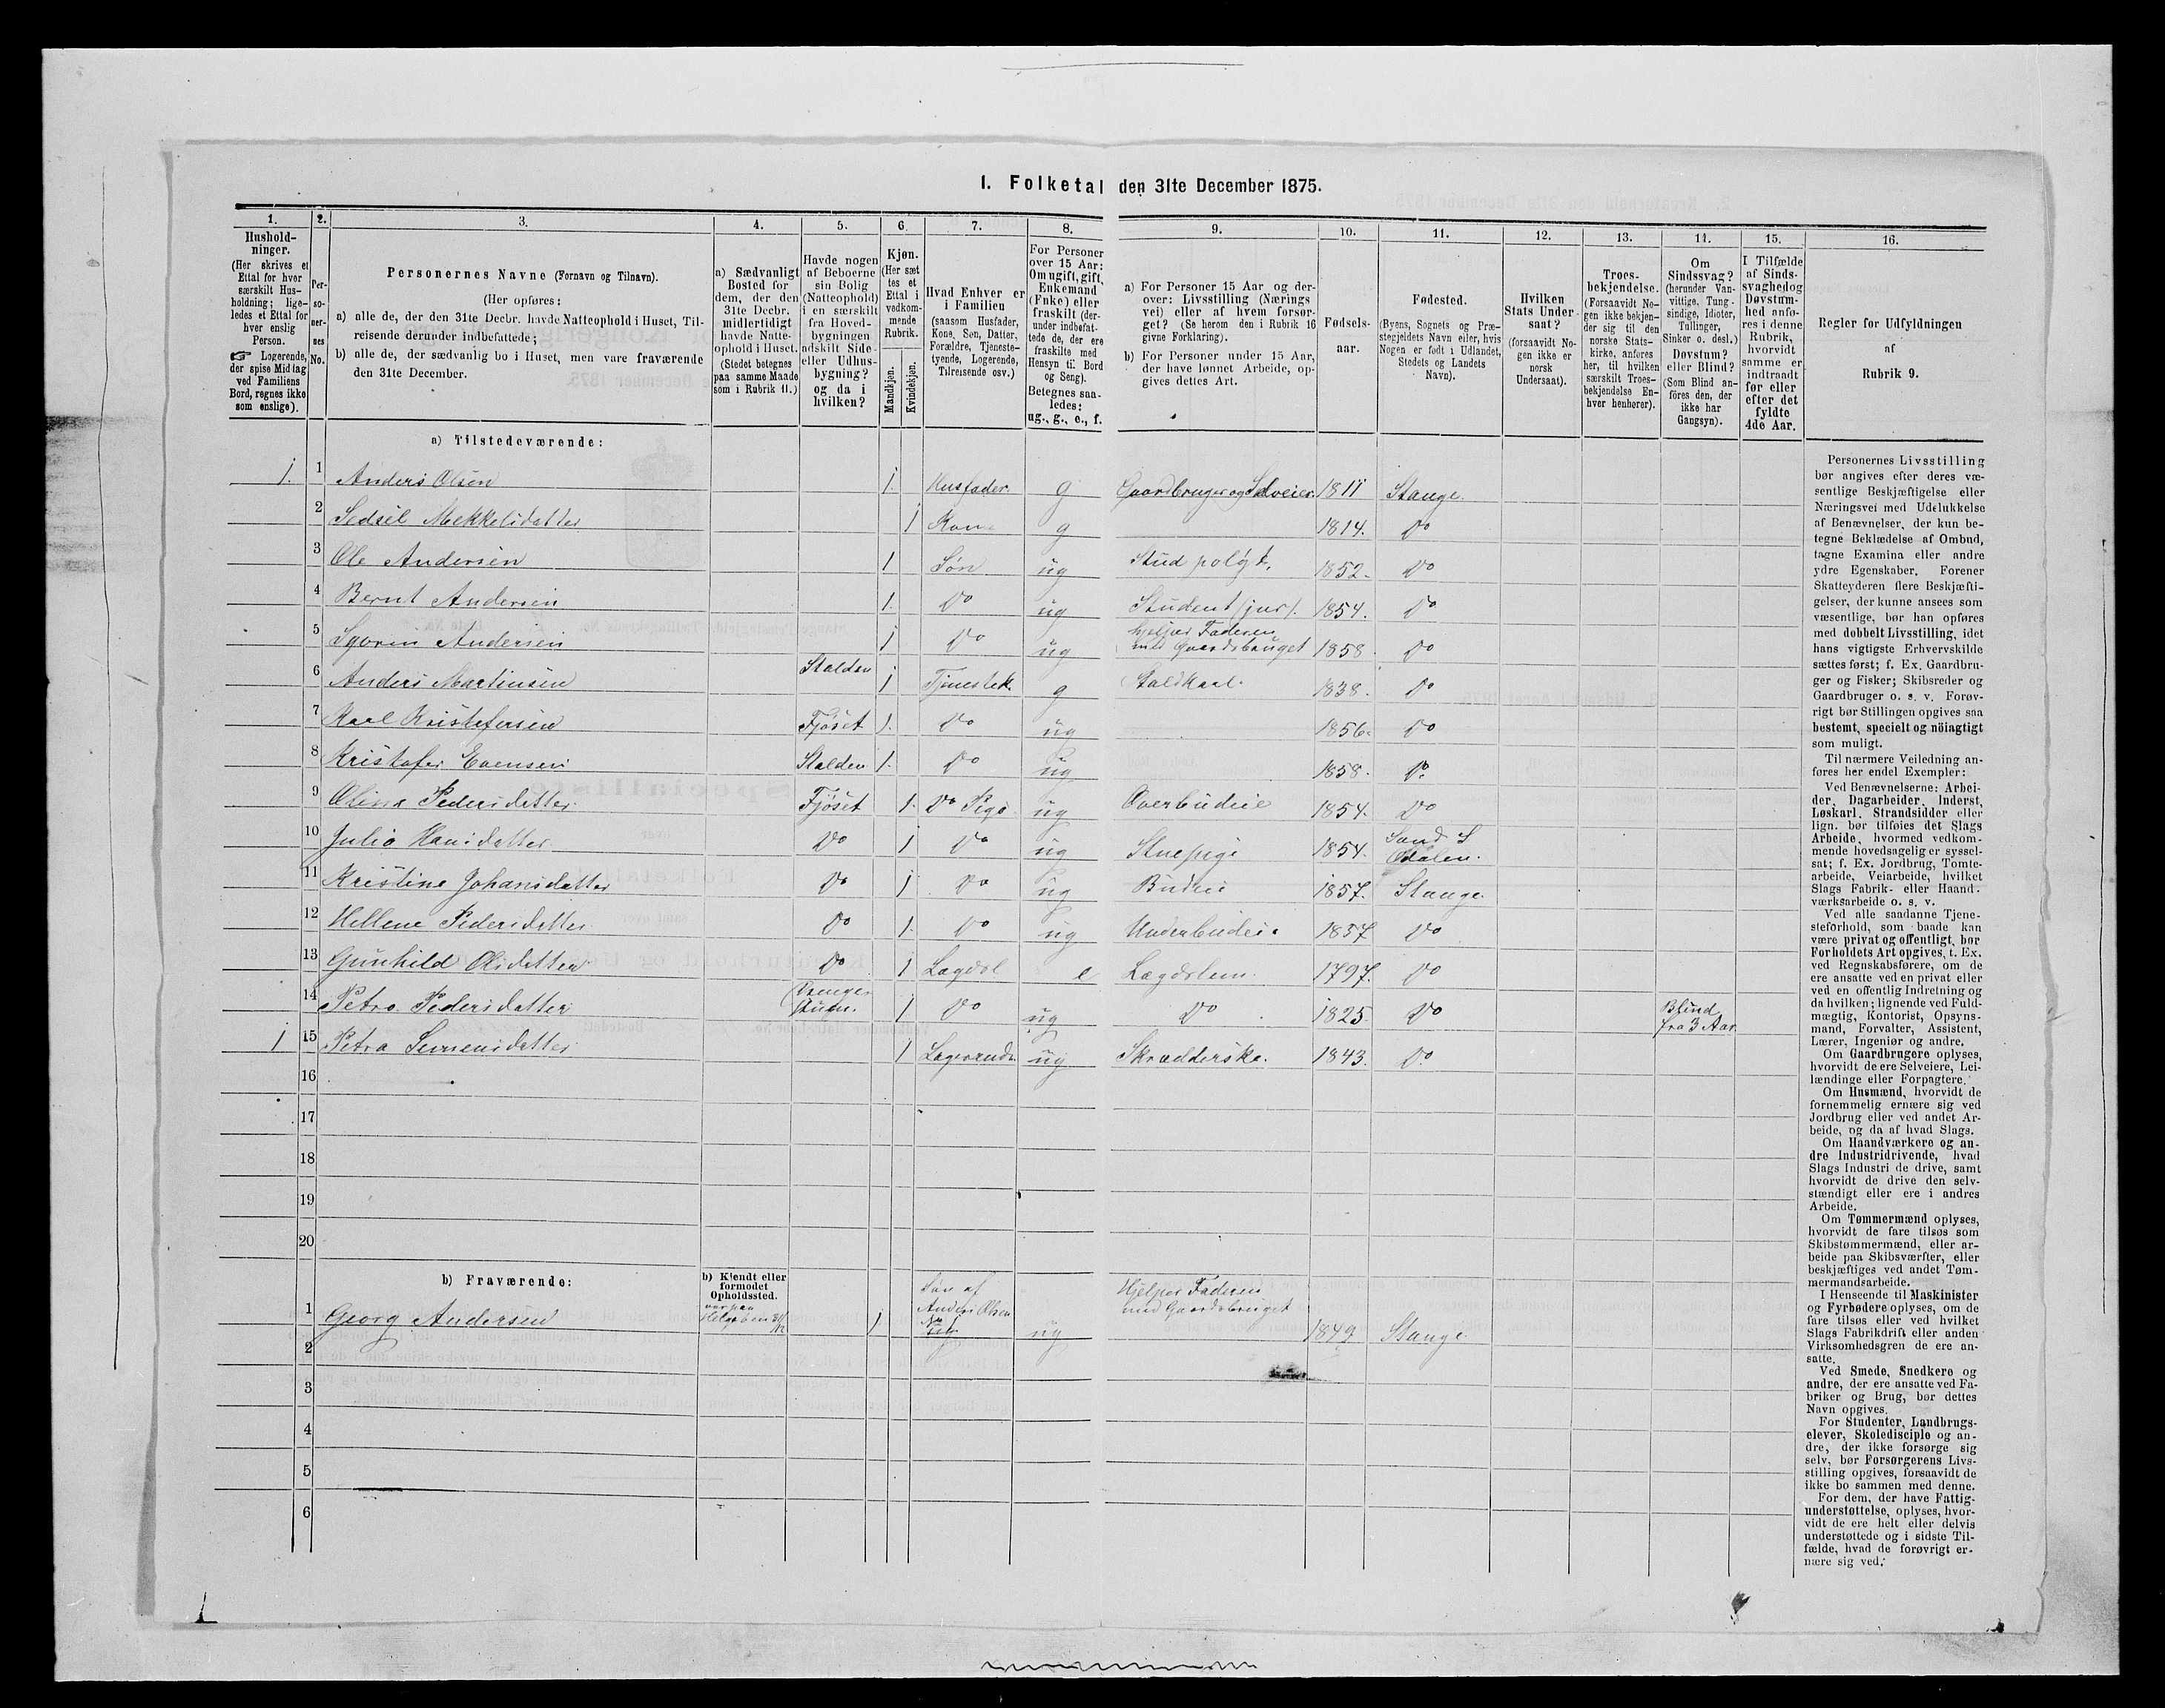 I. Folketal den 31te December 1875.
1. 2. 3. 4. 5. 6. 7. 8. 9. 10. 11. 12. 13. 14. 15. 16.
Hushold-
ninger.
(Her skrives et
Ettal for hver
særskilt Hus-
holdning; lige-
ledes et Ettal for
hver enslig
Person.
☞ Logerende,
der spise Middag
ved Familiens
Bord, regnes ikke
som enslige).
Per-
so-
ner-
nes
No.
Personernes Navne (Fornavn og Tilnavn).
(Her opføres:
a) alle de, der den 31te Decbr. havde Natteophold i Huset, Til-
reisende derunder indbefattede;
b) alle de, der sædvanlig bo i Huset, men vare fraværende
den 31te December.
a) Sædvanligt
Bosted for
dem, der den
31te Decbr.
midlertidigt
havde Natte-
ophold i Huset.
(Stedet betegnes
paa samme Maade
som i Rubrik 11.)
Havde nogen
af Beboerne
sin Bolig
(Natteophold)
i en særskilt
fra Hoved-
bygningen
adskilt Side-
eller Udhus-
bygning?
og da i
hvilken?
Kjøn.
(Her sæt-
tes et
Ettal i
vedkom-
mende
Rubrik.
Mandkjøn.
Kvindekjøn.
Hvad Enhver er
i Familien
(saasom Husfader,
Kone, Søn, Datter,
Forældre, Tjeneste-
tyende, Logerende,
Tilreisende osv.)
For Personer
over 15 Aar:
Om ugift, gift,
Enkemand
(Enke) eller
fraskilt (der-
under indbefat-
tede de, der ere
fraskilte med
Hensyn til Bord
og Seng).
Betegnes saa-
ledes:
ug., g., e., f.
a) For Personer 15 Aar og der-
over: Livsstilling (Nærings
vei) eller af hvem forsør-
get? (Se herom den i Rubrik 16
givne Forklaring).
b) For Personer under 15 Aar,
der have lønnet Arbeide, op-
gives dettes Art.
Fødsels-
aar.
Fødested.
(Byens, Sognets og Præ-
stegjeldets Navn eller, hvis
Nogen er født i Udlandet,
Stedets og Landets
Navn).
Hvilken
Stats Under-
saat?
(forsaavidt No-
gen ikke er
norsk
Undersaat).
Troes-
bekjendelse.
(Forsaavidt No-
gen ikke bekjen-
der sig til den
norske Stats-
kirke, anføres
her, til hvilken
særskilt Troes-
bekjendelse En-
hver henhører).
Om
Sindssvag?
(herunder Van-
vittige, Tung-
sindige, Idioter,
Tullinger,
Sinker o. desl.)
Døvstum?
eller Blind?
(Som Blind an-
føres den, der
ikke har
Gangsyn).
I Tilfælde
af Sinds-
svaghed og
Døvstum-
hed anfø-
res i denne
Rubrik,
hvorvidt
samme er
indtraadt
før eller
efter det
fyldte
4de Aar.
Regler for Udfyldningen
af
Rubrik 9.
a) Tilstedeværende:
1. 1 Anders Olsen 1. Husfader. g Gaardbruger og Selveier. 1811 Stange.
2 Sedsel Mekkelsdatter 1 Kone g 1814. Do
3 Ole Andersen 1 Søn ug Stud polyt. 1852. Do
4 Bernt Andersen 1. Do ug Student (jur). 1854. Do
5 Andersen 1 Do ug hjelper Faderen
med Gaardsbruget 1858. Do
6 Anders Martinsen Stalden 1 Tjenestek. g Staldkarl. 1838. Do
7 Karl Kristofersen Fjøset 1. Do ug 1856. Do
8 Kristofer Evensen Stalden 1. Do ug 1858. Do.
9 Oline Pedersdatter Fjøset 1. Do Pige ug Overbudeie 1854. Do
10 Julie Hansdatter Do 1 Do ug Stuepige 1854. Sand S
Odalen.
11 Kristine Johansdatter Do 1 Do ug Budeie 1857. Stange.
12 Hellene Pedersdatter Do 1. Do ug Underbudeie 1857 Do
13 Gunhild Olsdatter Do 1 Lægdsl e Lægdslem. 1797. Do
14 Petra Pedersdatter 1 Do ug Do 1825. Do Blind
fra 3 Aar
1 15 Petra Simensdatter 1 Logerende ug Skrædderske. 1843. Do.
16
17
18
19
20
b) Fraværende:
b) Kjendt eller
formodet
Opholdssted.
1 Georg Andersen 1 Søn af
Anders Olsen
No 1 ug Hjelper Faderen
med Gaardsbruget 1849 Stange
2
3
4
5
6
Personernes Livsstilling
bør angives efter deres væ-
sentlige Beskjæftigelse eller
Næringsvei med Udelukkelse
af Benævnelser, der kun be-
tegne Beklædelse af Ombud,
tagne Examina eller andre
ydre Egenskaber. Forener
Skatteyderen flere Beskjæfti-
gelser, der kunne ansees som
væsentlige, bør han opføres
med dobbelt Livsstilling, idet
hans vigtigste Erhvervskilde
sættes først; f. Ex. Gaardbru-
ger og Fisker; Skibsreder og
Gaardbruger o. s. v. Forøv-
rigt bør Stillingen opgives saa
bestemt, specielt og nöiagtigt
som muligt.
Til nærmere Veiledning an-
føres her endel Exempler:
Ved Benævnelserne: Arbei-
der, Dagarbeider, Inderst,
Løskarl, Strandsidder eller
lign. bør tilføies det Slags
Arbeide, hvormed vedkom-
mende hovedsagelig er syssel-
sat; f. Ex. Jordbrug, Tomte-
arbeide, Veiarbeide, hvilket
Slags Fabrik- eller Haand-
værksarbeide o. s. v.
Ved alle saadanne Tjene-
steforhold, som baade kan
være privat og offentligt, bør
Forholdets Art opgives, t. Ex.
ved Regnskabsførere, om de
ere ansatte ved en privat eller
ved en offentlig Indretning og
da hvilken; lignende ved Fuld-
mægtig, Kontorist, Opsyns-
mand, Forvalter, Assistent,
Lærer, Ingeniør og andre.
Om Gaardbrugere oplyses,
hvorvidt de ere Selveiere, Lei-
lændinge eller Forpagtere.
Om Husmænd, hvorvidt de
fornemmelig ernære sig ved
Jordbrug eller ved andet Ar-
beide, og da af hvad Slags.
Om Haandværkere og an-
dre Industridrivende, hvad
Slags Industri de drive, samt
hvorvidt de drive den selv-
stændigt eller ere i andres
Arbeide.
Om Tømmermænd oplyses,
hvorvidt de fare tilsøs som
Skibstømmermænd, eller ar-
beide paa Skibsværfter, eller
beskjæftiges ved andet Tøm-
mermandsarbeide.
I Henseende til Maskinister
og Fyrbødere oplyses, om de
fare tilsøs eller ved hvilket
Slags Fabrikdrift eller anden
Virksomhedsgren de ere an-
satte.
Ved Smede, Snedkere og
andre, der ere ansatte ved Fa-
briker og Brug, bør dettes
Navn opgives.
For Studenter, Landbrugs-
elever, Skoledisciple og an-
dre, der ikke forsørge sig
selv, bør Forsørgerens Livs-
stilling opgives, forsaavidt de
ikke bo sammen med denne.
For dem, der have Fattig-
understøttelse, oplyses, hvor-
vidt de ere helt eller delvis
understøttede og i sidste Til-
fælde, hvad de forøvrigt er-
nære sig ved.